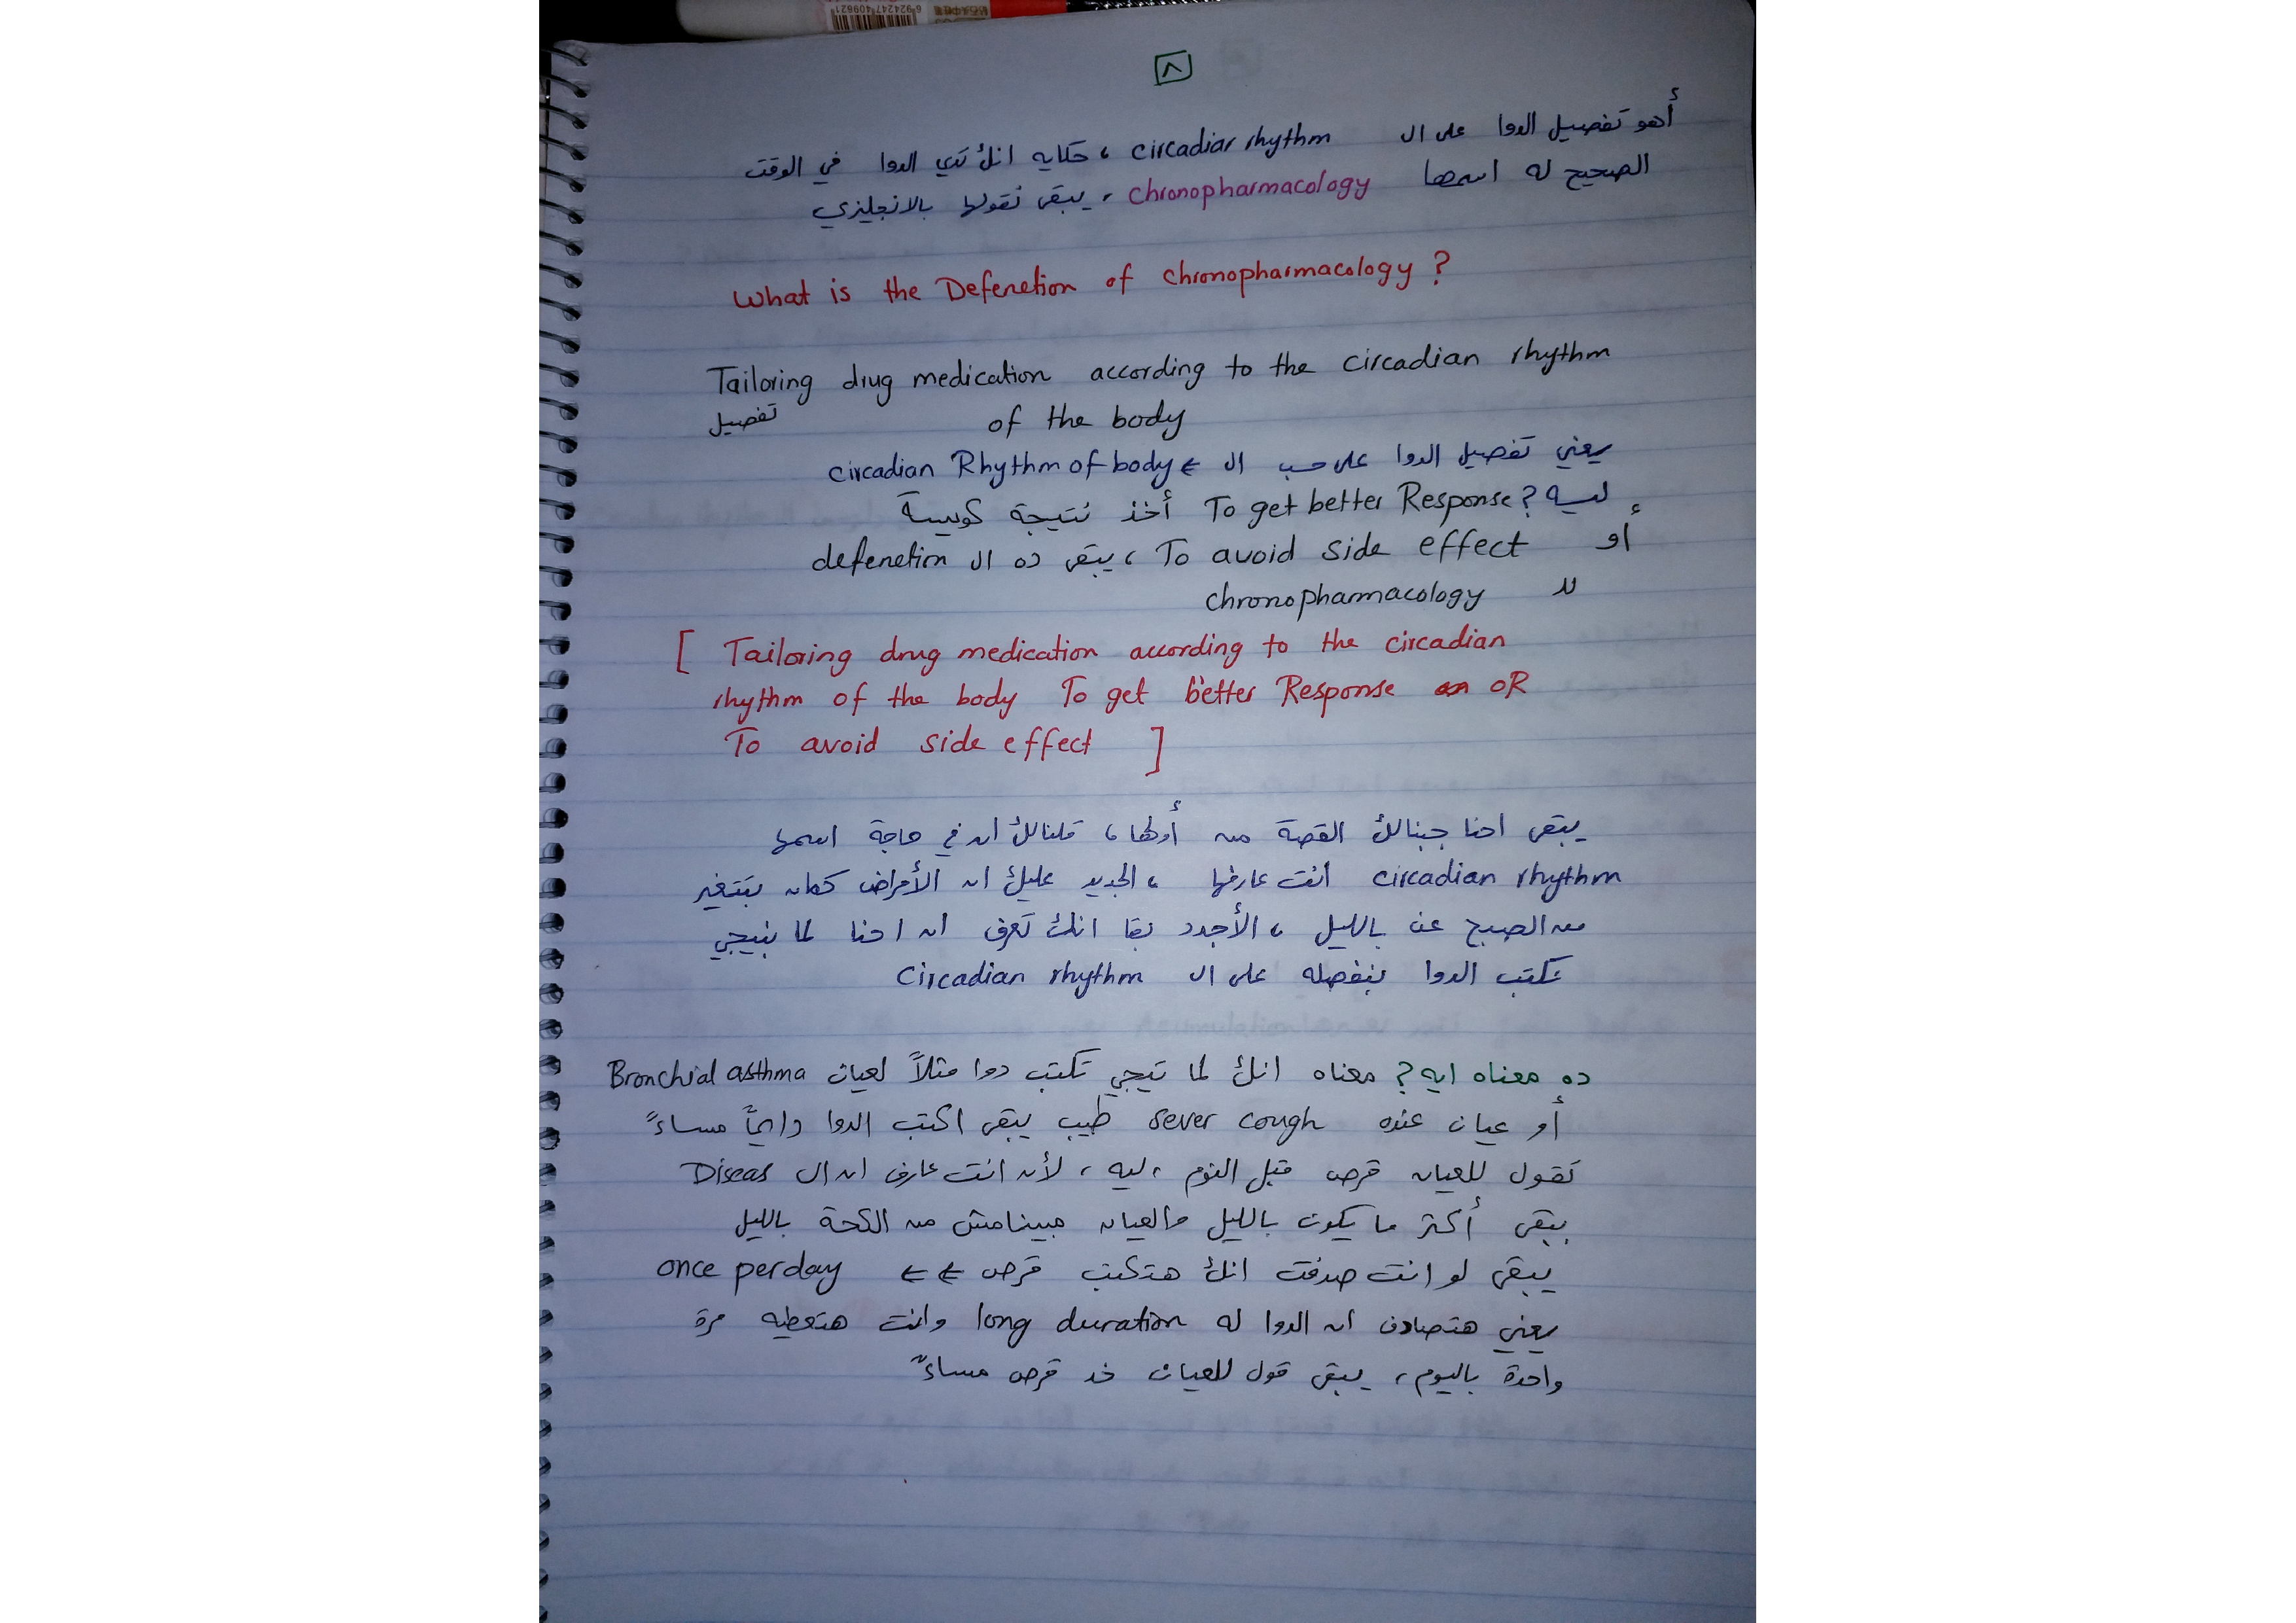 ٨
أهو تفصيل الدوا على ال circadiar rhythm ، حكايه انك تدي الدوا في الوقت
الصحيح له اسمها chronopharmacology ، يبقى نقولها بالانجليزي
What is the Defenetion of chronopharmacology ?
Tailoring drug medication according to the circadian rhythm
تفصيل of the body
يعني تفصيل الدوا على حسب ال ← circadian Rhythm of body
ليه ? To get better Response أخذ نتيجة كويسة
أو To avoid side effect ، يبقى ده ال defenetion
لل chronopharmacology
[ Tailoring drug medication according to the circadian
rhythm of the body To get better Response OR
To avoid side effect ]
يبقى احنا جبنالك القصة من أولها ، قلنالك ان في حاجة اسمها
circadian rhythm انت عارفها ، الجديد عليك ان الأمراض كمان بتتغير
من الصبح عن بالليل ، الأجدد بقا انك تعرف ان احنا لما بنيجي
نكتب الدوا بنفصله على ال circadian rhythm
ده معناه ايه ? معناه انك لما تيجي تكتب دوا مثلاً لعيان Bronchial asthma
أو عيان عنده sever cough طيب يبقى اكتب الدوا دايماً مساءً
تقول للعيان قرص قبل النوم ، ليه ، لأن انت عارف ان ال Diseas
بيبقى أكتر ما يكون بالليل والعيان مبينامش من الكحة بالليل
يبقى لو انت صدفت انك هتكتب قرص ← ← once perday
يعني هتصادف ان الدوا له long duration وانت هتعطيه مرة
واحدة باليوم ، يبقى قول للعيان خد قرص مساءً